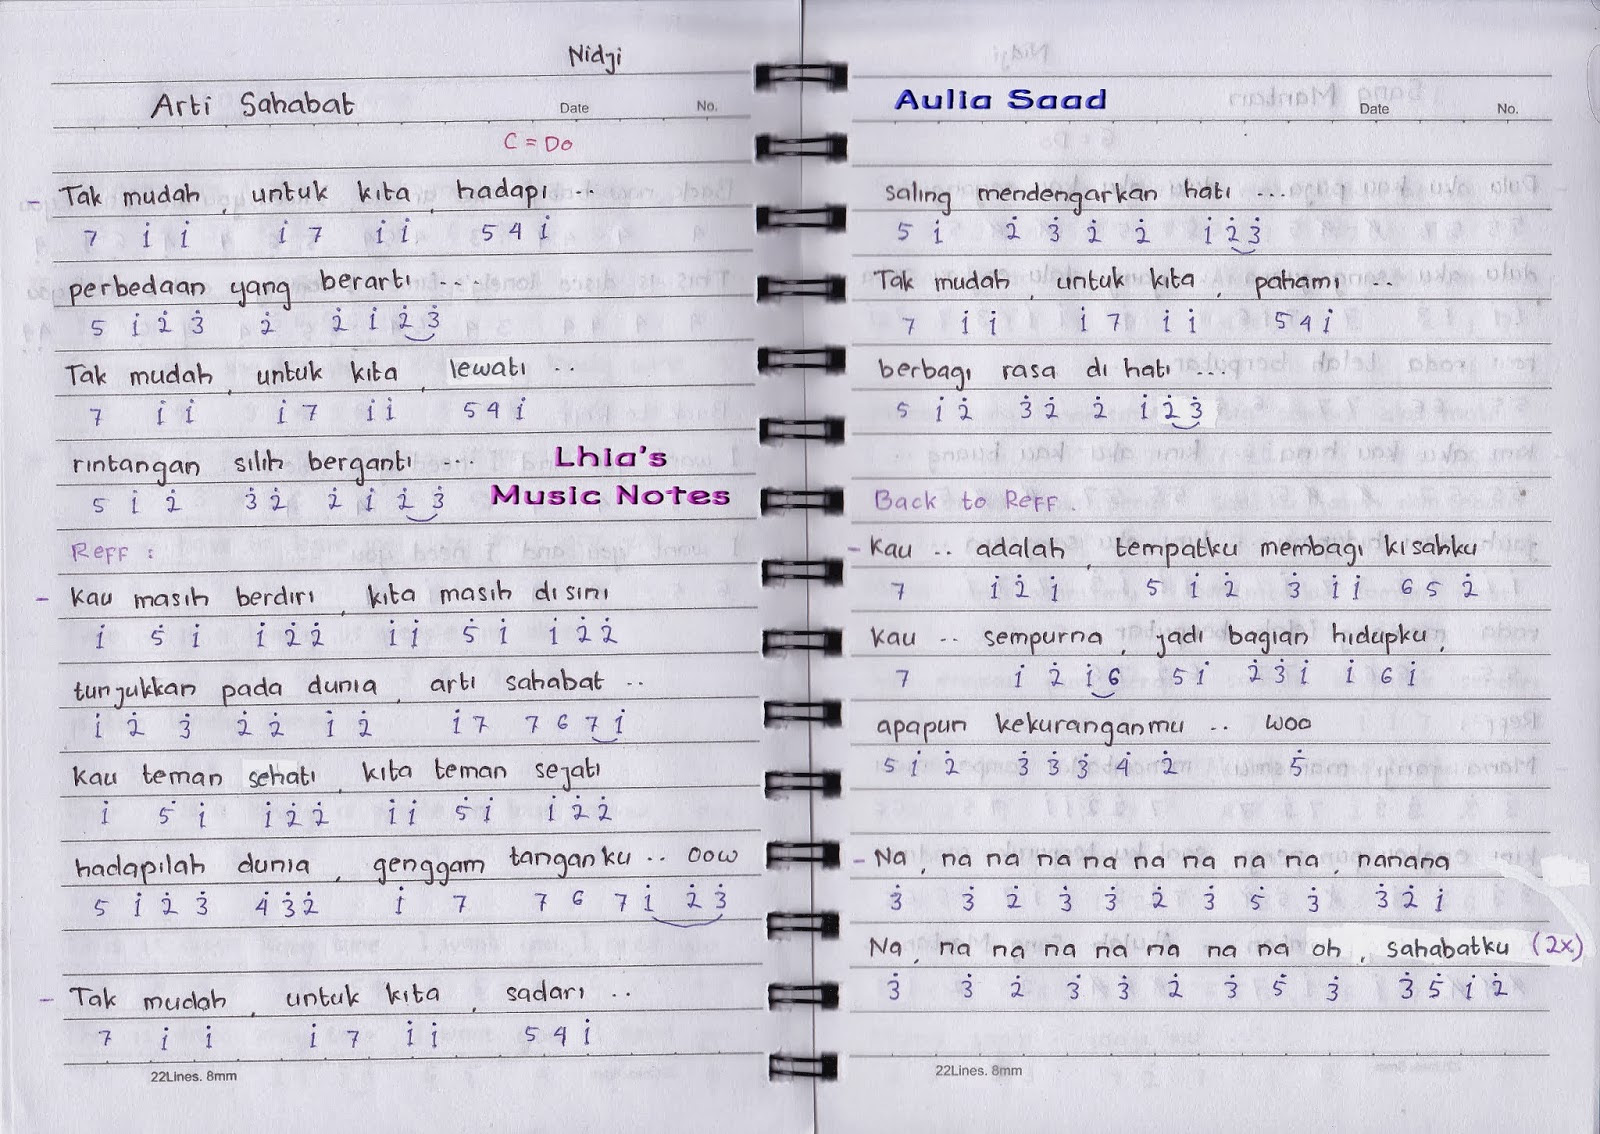 Nidji
Arti Sahabat
Date
No.
C = Do
- Tak mudah , untuk kita , hadapi ..
7 i̇ i̇ i̇ 7 i̇ i̇ 5 4 i̇
perbedaan yang berarti ....
5 1̇ 2̇ 3̇ 2̇ 2̇ 1̇ 2̇ 3̇
Tak mudah , untuk kita , lewati ..
7 1̇ 1̇ 1̇ 7 1̇ 1̇ 5 4 1̇
rintangan silih berganti ...
5 1̇ 2̇ 3̇ 2̇ 2̇ 1̇ 2̇ 3̇
Lhia's
Music Notes
Reff :
- Kau masih berdiri , kita masih disini
1̇ 5̇ 1̇ 1̇ 2̇ 2̇ 1̇ 1̇ 5̇ 1̇ 1̇ 2̇ 2̇
tunjukkan pada dunia , arti sahabat ..
1̇ 2̇ 3̇ 2̇ 2̇ 1̇ 2̇ 1̇ 7 7 6 7 1̇
kau teman sehati , kita teman sejati
1̇ 5̇ 1̇ 1̇ 2̇ 2̇ 1̇ 1̇ 5̇ 1̇ 1̇ 2̇ 2̇
hadapilah dunia , genggam tanganku .. oow
5 1̇ 2̇ 3̇ 4̇ 3̇ 2̇ 1̇ 7 7 6 7 1̇ 2̇ 3̇
- Tak mudah , untuk kita , sadari ..
7 1̇ 1̇ 1̇ 7 1̇ 1̇ 5 4 1̇
22Lines. 8mm
Aulia Saad
Date
No.
saling mendengarkan hati ...
5 1̇ 2̇ 3̇ 2̇ 2̇ 1̇ 2̇ 3̇
Tak mudah , untuk kita , pahami ..
7 1̇ 1̇ 1̇ 7 1̇ 1̇ 5 4 1̇
berbagi rasa di hati ...
5 1̇ 2̇ 3̇ 2̇ 2̇ 1̇ 2̇ 3̇
Back to Reff .
- Kau .. adalah , tempatku membagi kisahku
7 1̇ 2̇ 1̇ 5 1̇ 2̇ 3̇ 1̇ 1̇ 6 5 2̇
Kau .. sempurna , jadi bagian hidupku ,
7 1̇ 2̇ 1̇ 6 5 1̇ 2̇ 3̇ 1̇ 1̇ 6 1̇
apapun kekuranganmu .. woo
5 1̇ 2̇ 3̇ 3̇ 3̇ 4̇ 2̇ 5̇
- Na , na na na na na na na na , nanana
3̇ 3̇ 2̇ 3̇ 3̇ 2̇ 3̇ 5̇ 3̇ 3̇ 2̇ 1̇
Na , na na na na na na na oh , sahabatku (2x)
3̇ 3̇ 2̇ 3̇ 3̇ 2̇ 3̇ 5̇ 3̇ 3̇ 5̇ 1̇ 2̇
22Lines. 8mm